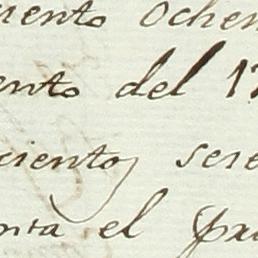 iento ochen
ento del 17
ciento, sese
nta el pri